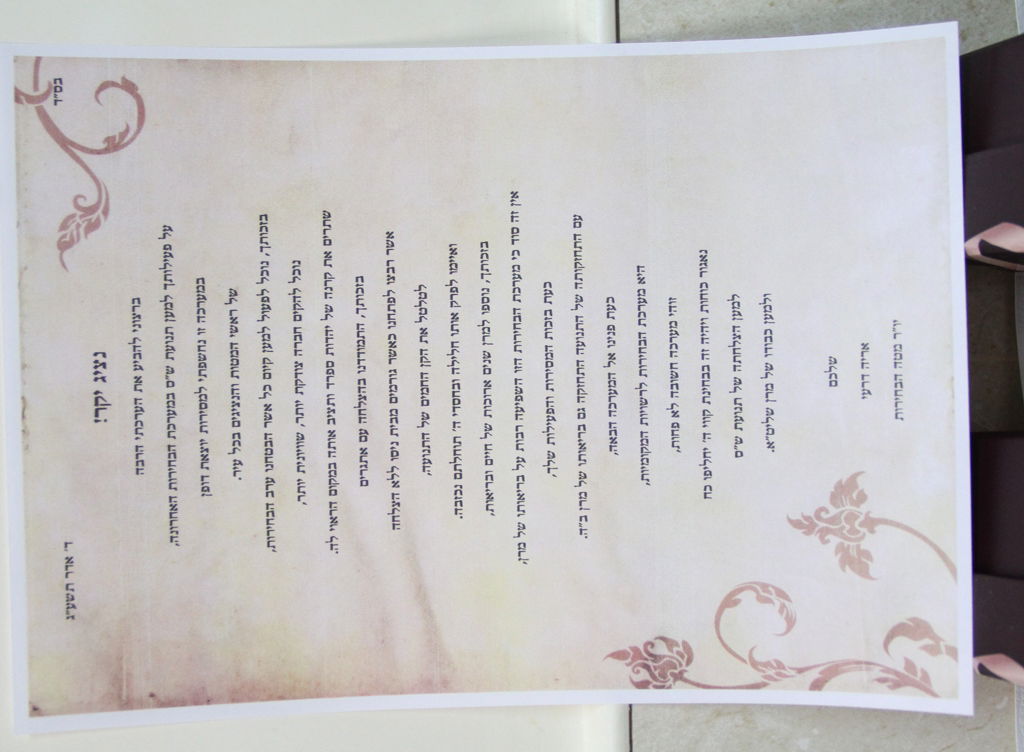 בס"ד
ד' אדר תשע"ג
נציג יקר!
ברצוני להביע את הערכתי הרבה
על פעילותך למען תנועת ש"ס במערכת הבחירות האחרונה,
במערכה זו נחשפתי למסירות יוצאת דופן
של ראשי המטות והנציגים בכל עיר.
בזכותך, נוכל לפעול למען קיום כל אשר הבטחנו ערב הבחירות,
נוכל להקים חברה צודקת יותר, שוויונית יותר,
שתרים את קרנה של יהדות ספרד ותציב אותה במקום הראוי לה.
בזכותך, התמודדנו בהצלחה עם אתגרים
אשר רבצו לפתחנו כאשר גורמים מבית ניסו ללא הצלחה
לסלסל את הזקן החכמים של התנועה,
ואיימו לפרק אותנו חלילה ובחסדי ה' תוחלתם נכזבה.
בזכותך, ניספו למרן שנים ארוכות של חיים ובריאות,
אין זה סוד כי מערכת הבחירות הזו השפיעה רבות על בריאותו של מרן,
בעת בזכות המסירות והפעילות שלך,
עם התחזקותה של התנועה התחזקה גם בריאותו של מרן ב"ה.
כעת פנינו אל המערכה הבאה,
היא מערכת הבחירות לרשויות המקומיות,
זוהי מערכה חשובה לא פחות,
נאגור כוחות ויהיה זה בבחינת קווי ה' יחליפו כח
למען הצלחתה של תנועת ש"ס
ולמען כבודו של מרן שליט"א.
שלכם
אריה דרעי
יו"ר מטה הבחירות